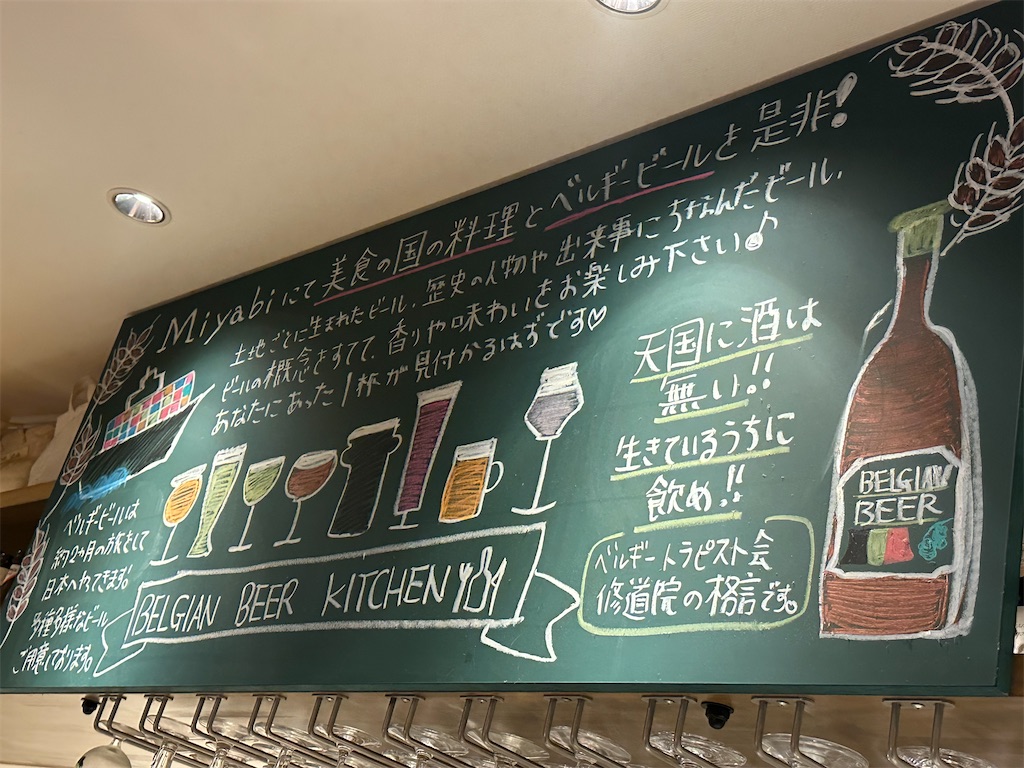 Miyabiにて美食の国の料理とベルギービールを是非!
土地ごとに生まれたビール、歴史の人物や出来事にちなんだビール、
ビールの概念をすてて、香りや味わいをお楽しみ下さい♪
あなたにあった1杯が見付かるはずです♡
天国に酒は
無い!!
生きているうちに
飲め!!
ベルギートラピスト会
修道院の格言です。
ベルギービールは
約2か月の旅をして
日本へやってきます。
多種多様なビール
ご用意しております。
BELGIAN BEER KITCHEN
BELGIAN
BEER